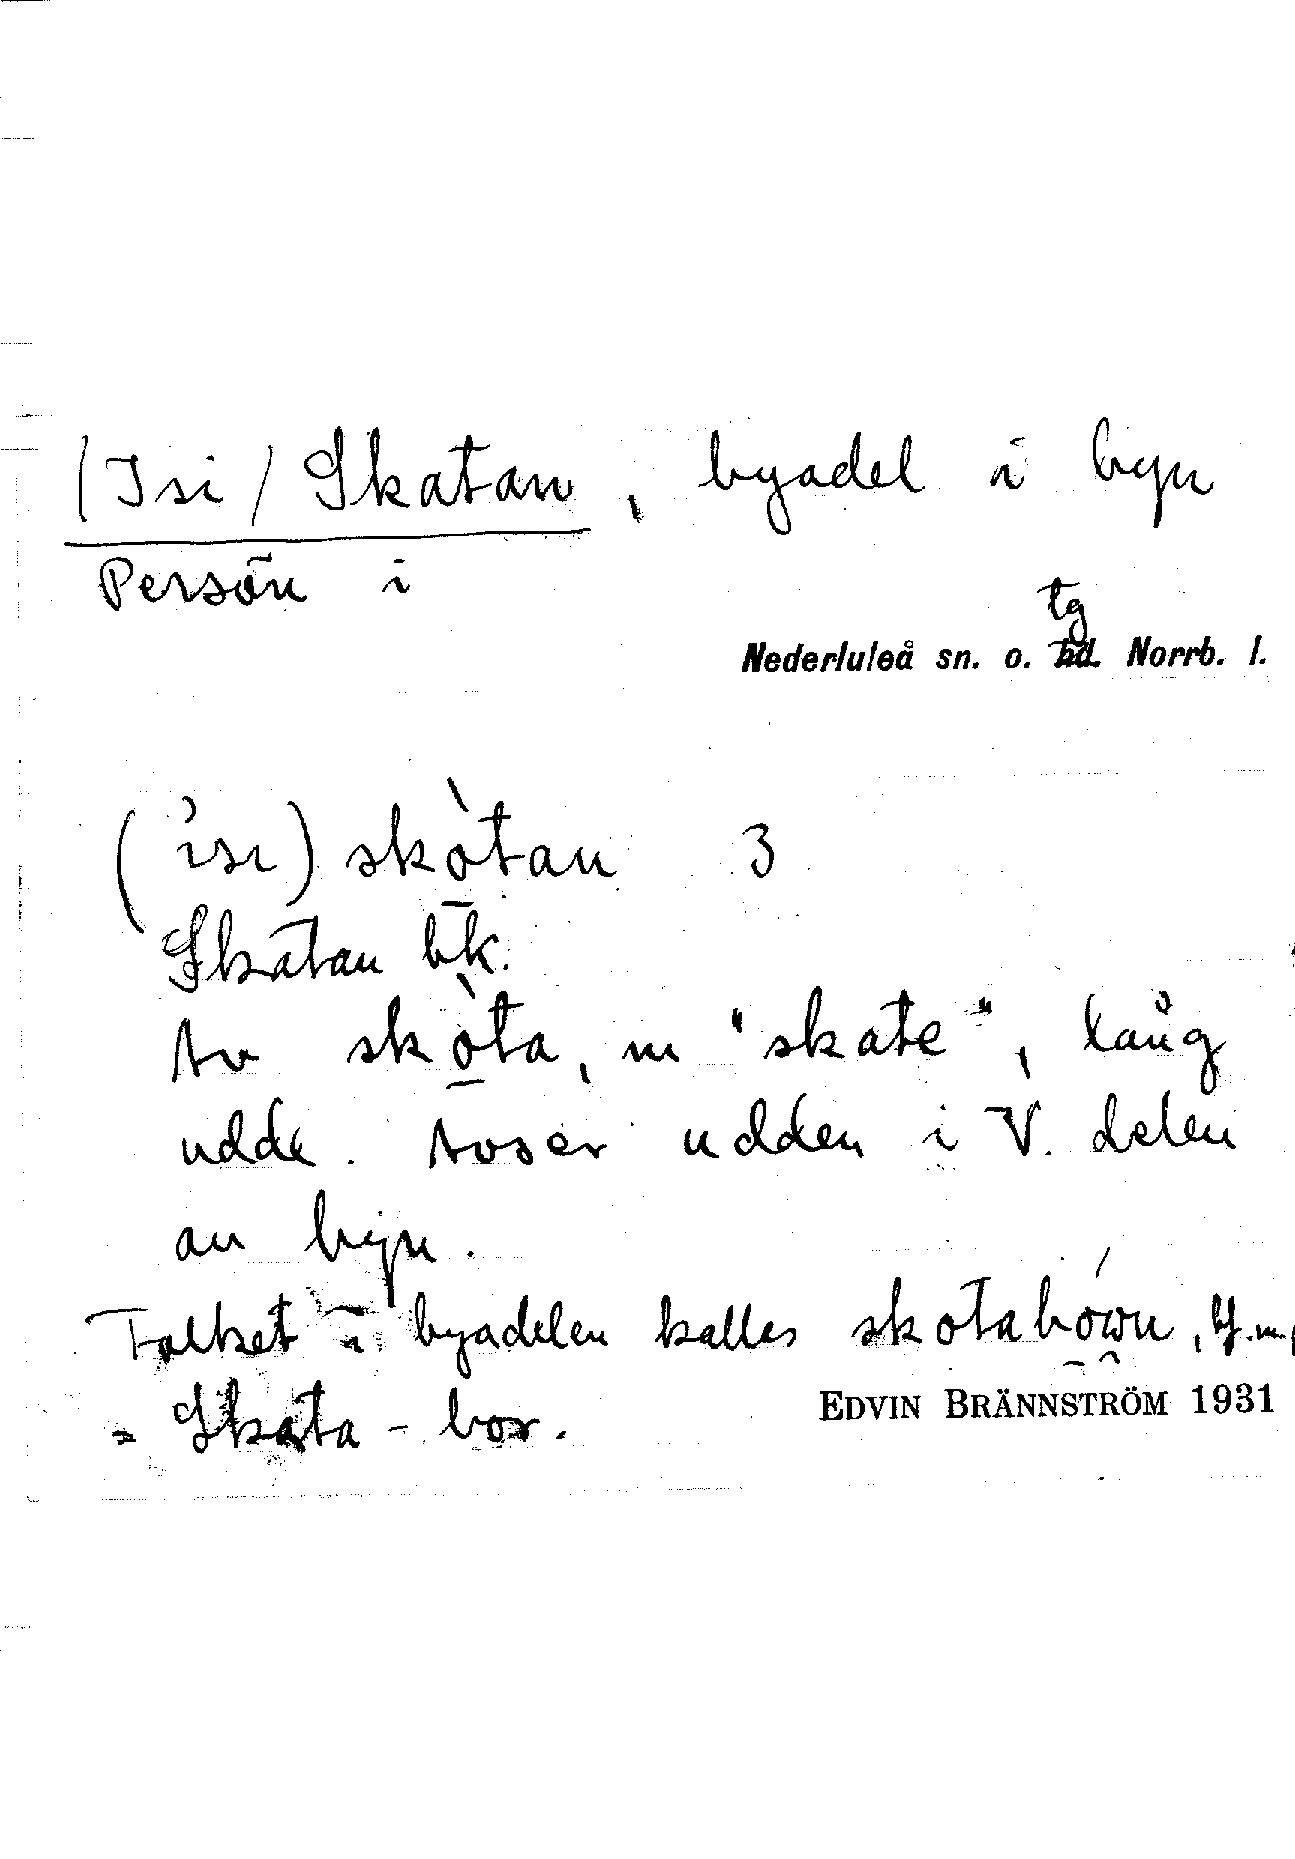 (Isi) Skatan, byadel i byn
Persön i
tg
Nederluleå sn. o. hd. Norrb. l.
(ísı) skò̱tan 3
Skatan bk.
Av skò̱ta, m "skate", lång
udde. Avser udden i V. delen
av byn.
Folket i byadelen kallas skotabówn,
= Skata-bor.
EDVIN BRÄNNSTRÖM 1931